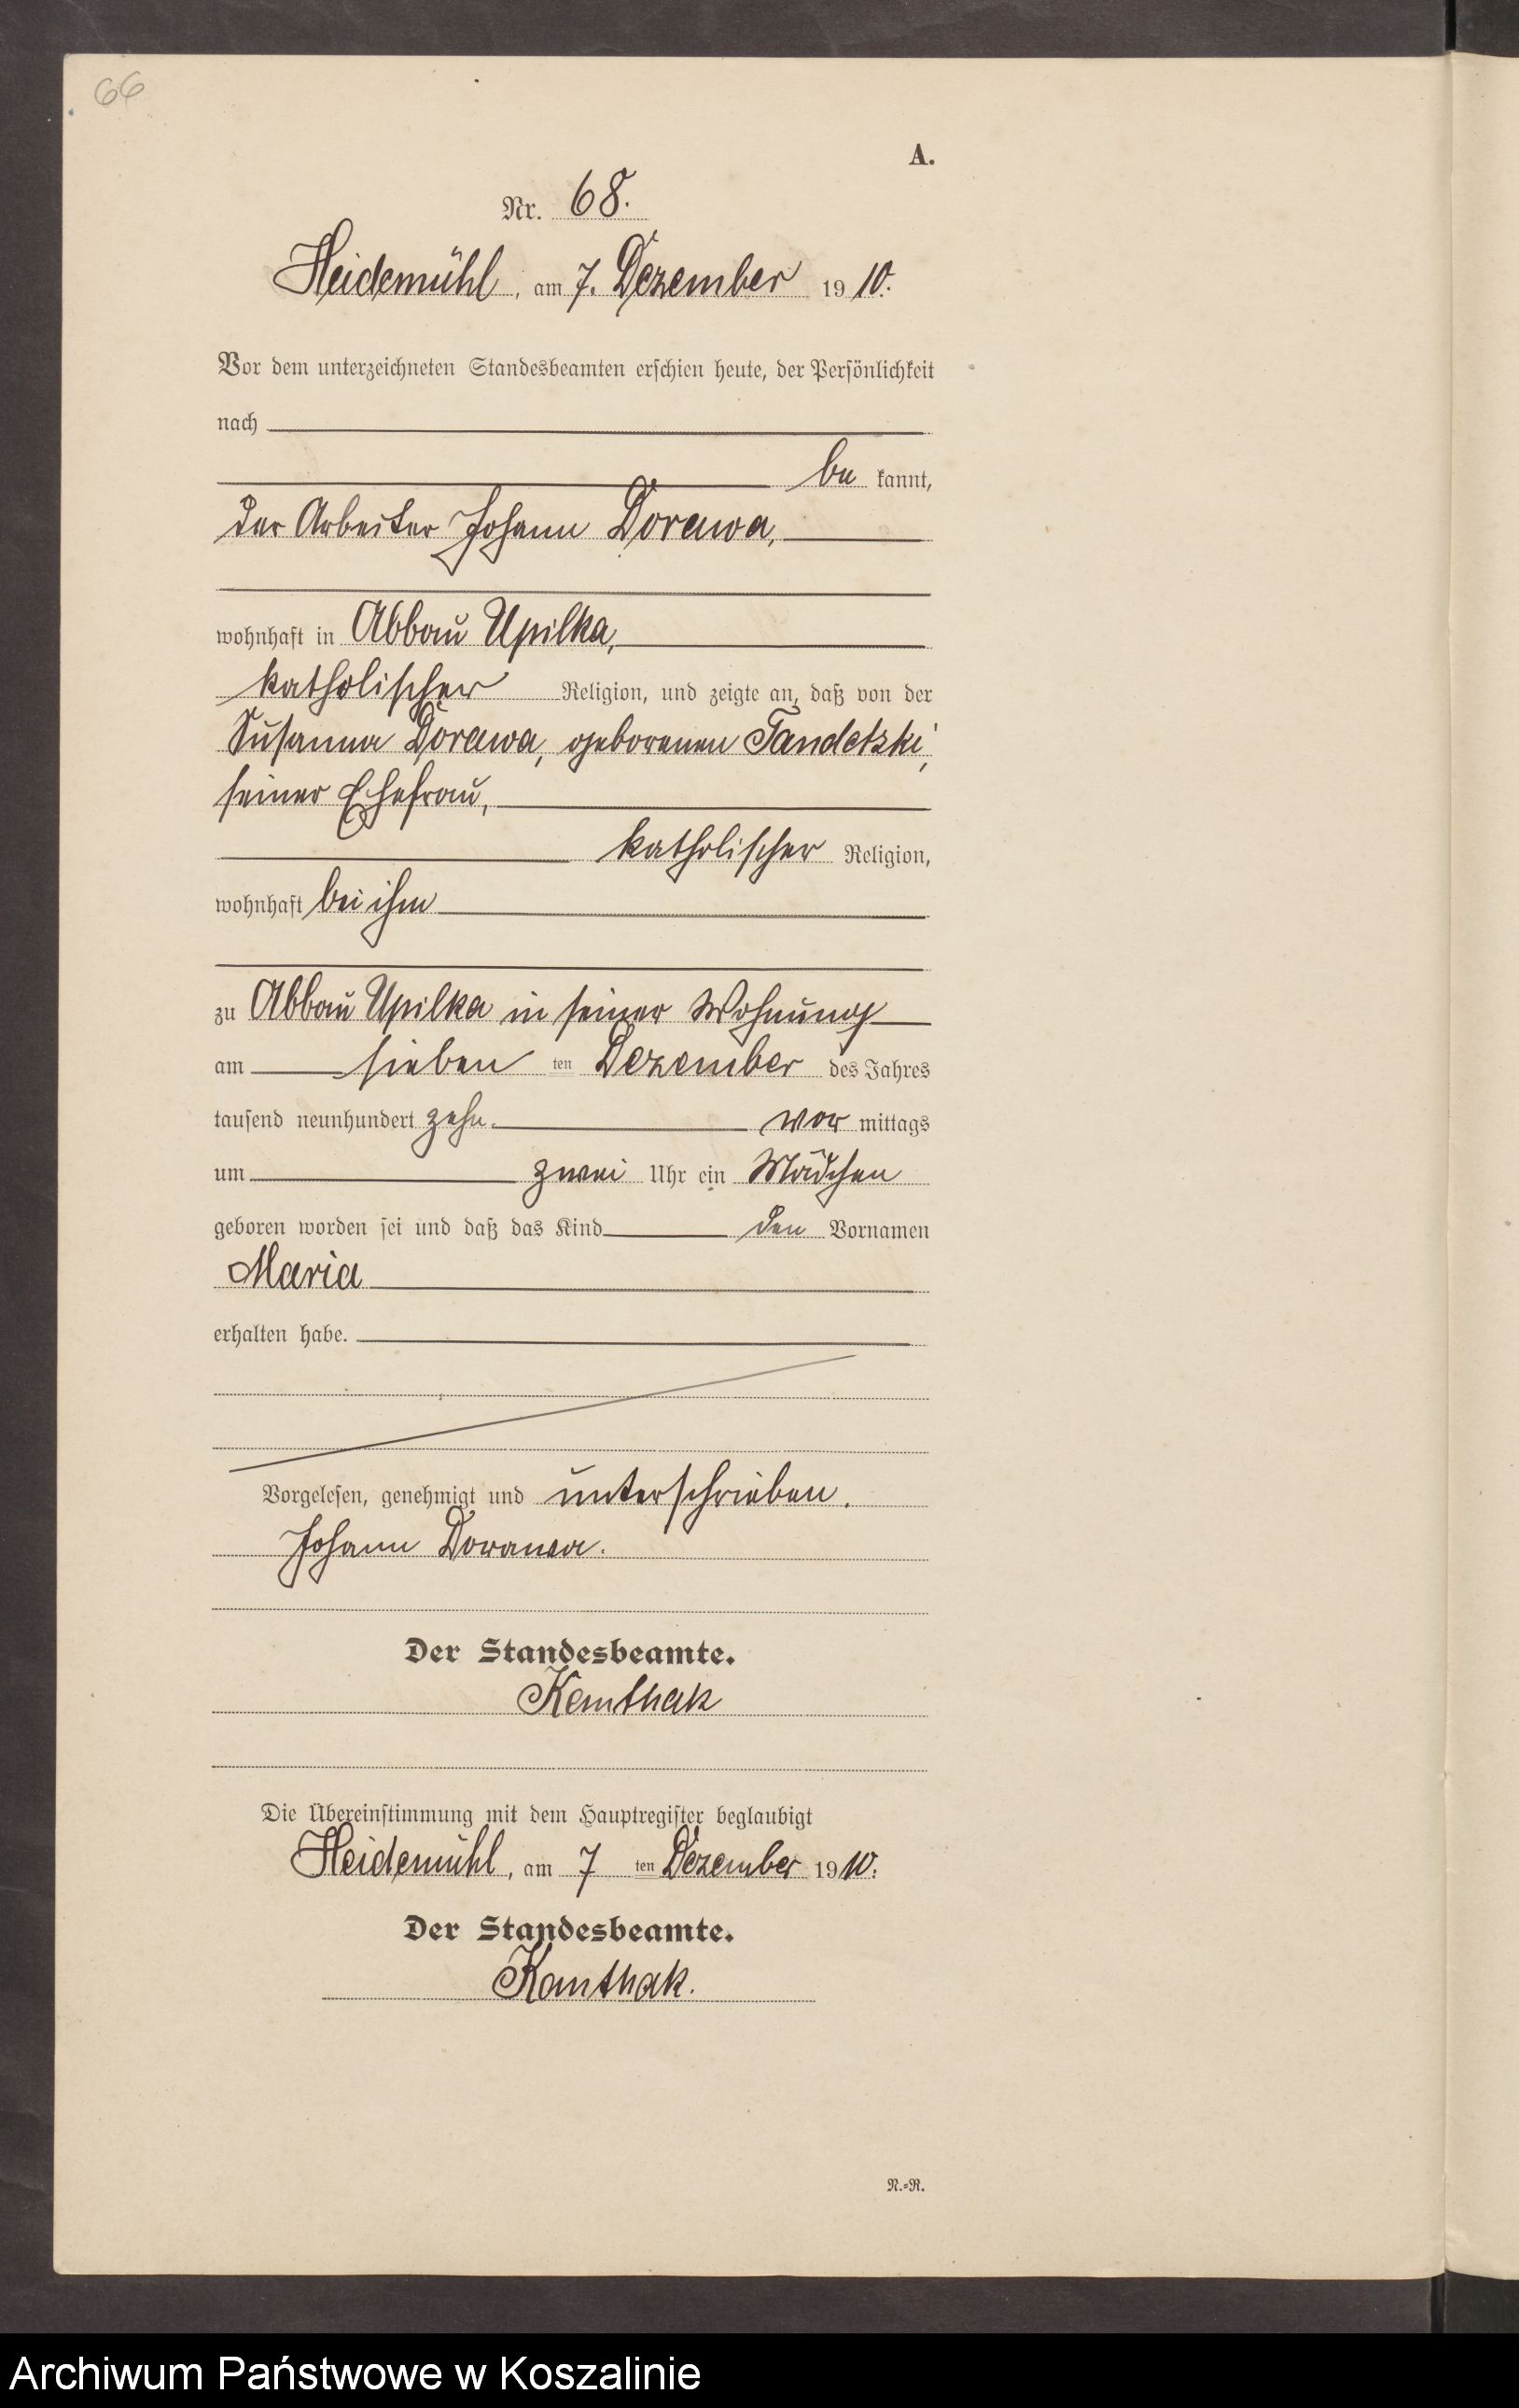 66
A.
Nr. 68.
Heidemühl, am 7. Dezember 1910.
Vor dem unterzeichneten Standesbeamten erschien heute, der Persönlichkeit
nach
be kannt,
der Arbeiter Johann Dorawa,
wohnhaft in Abbau Upilka,
katholischer Religion, und zeigte an, daß von der
Susanna Dorawa, geborenen Tandetzki,
seiner Ehefrau,
katholischer Religion,
wohnhaft bei ihm
zu Abbau Upilka in seiner Wohnung
am sieben ten Dezember des Jahres
tausend neunhundert zehn vor mittags
um zwei Uhr ein Mädchen
geboren worden sei und daß das Kind den Vornamen
Maria
erhalten habe.
Vorgelesen, genehmigt und unterschrieben.
Johann Dorawa.
Der Standesbeamte.
Kamthak
Die Übereinstimmung mit dem Hauptregister beglaubigt
Heidemühl, am 7 ten Dezember 1910.
Der Standesbeamte.
Kamthak.
N.=R.
Archiwum Państwowe w Koszalinie